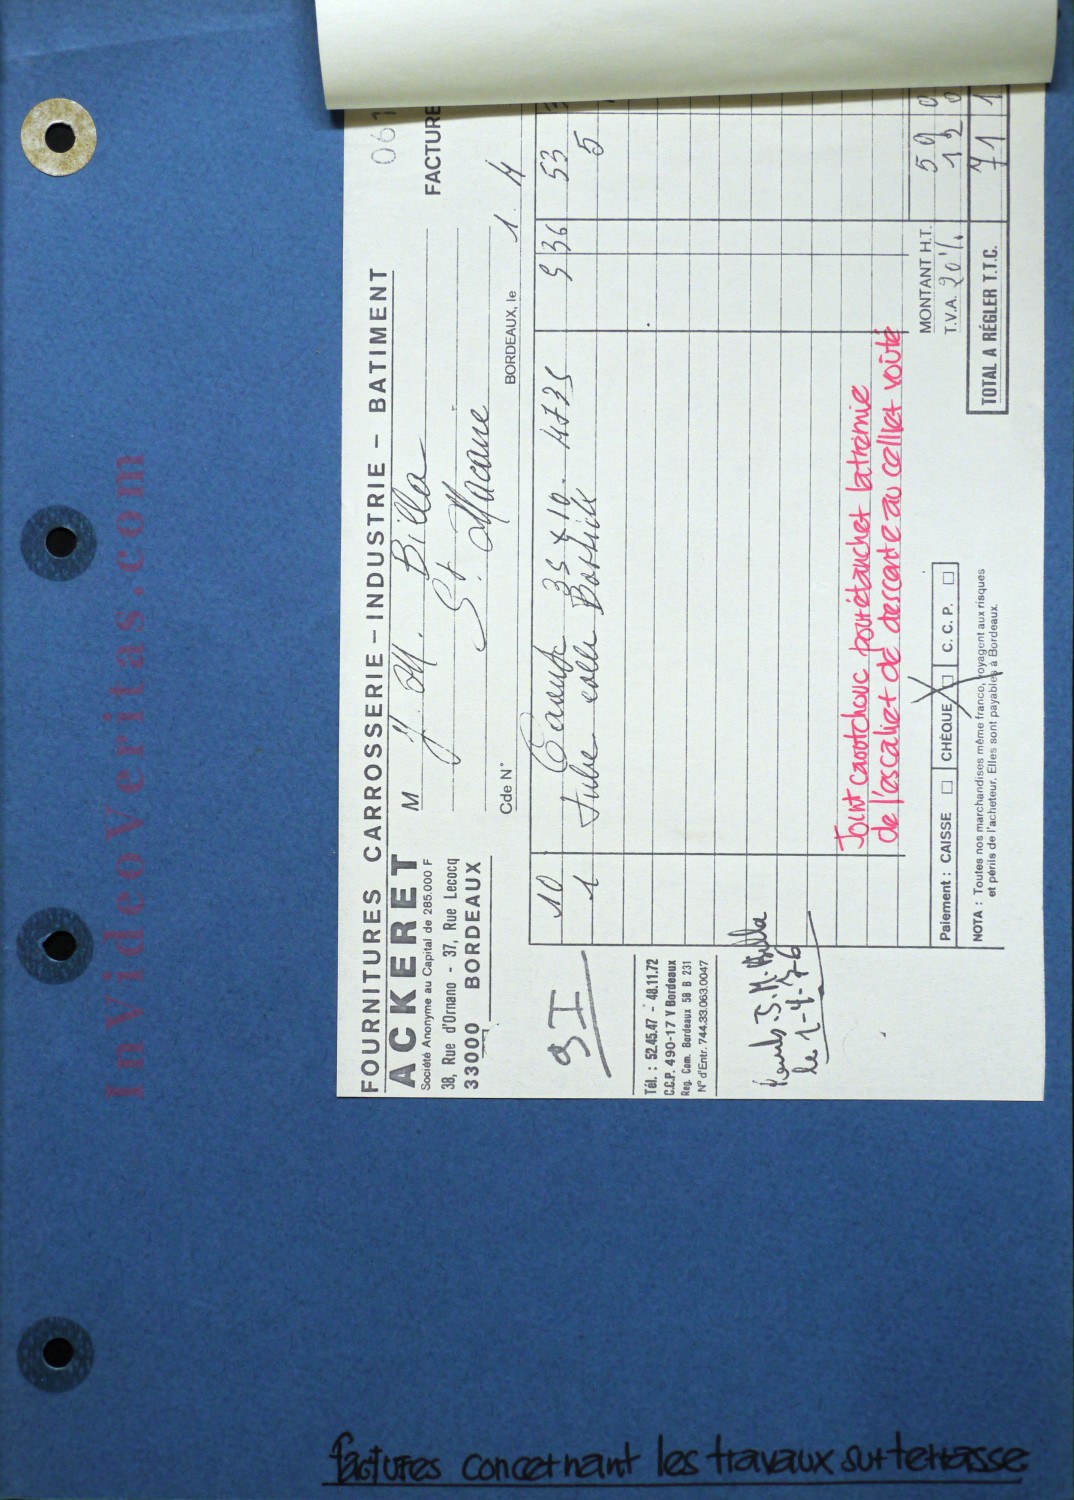 InVideoVeritas.com
FOURNITURES CARROSSERIE – INDUSTRIE – BATIMENT
ACKERET
Société Anonyme au Capital de 285.000 F
38, Rue d'Ornano - 37, Rue Lecocq
33000 BORDEAUX
M J. M. Billa
St Macaire
061
FACTURE
Cde N°
BORDEAUX, le 1. 4
9 I
10 35 x 10 - 4735 5 36 53
1 tube colle Bostick 5
Tél. : 52.45.47 - 48.11.72
C.C.P. 490-17 Y Bordeaux
Rég. Com. Bordeaux 58 B 231
N° d'Entr. 744.33.063.0047
J.M. Billa
le 1-4-76
Joint caoutchouc pour étancher la trémie
de l'escalier de descente au cellier voûté
MONTANT H.T. 59 0
T.V.A. 20% 12 0
TOTAL A RÉGLER T.T.C. 71 1
Paiement : CAISSE □ CHÈQUE □ C. C. P. □
NOTA : Toutes nos marchandises même franco, voyagent aux risques
et périls de l'acheteur. Elles sont payables à Bordeaux.
factures concernant les travaux sur terrasse